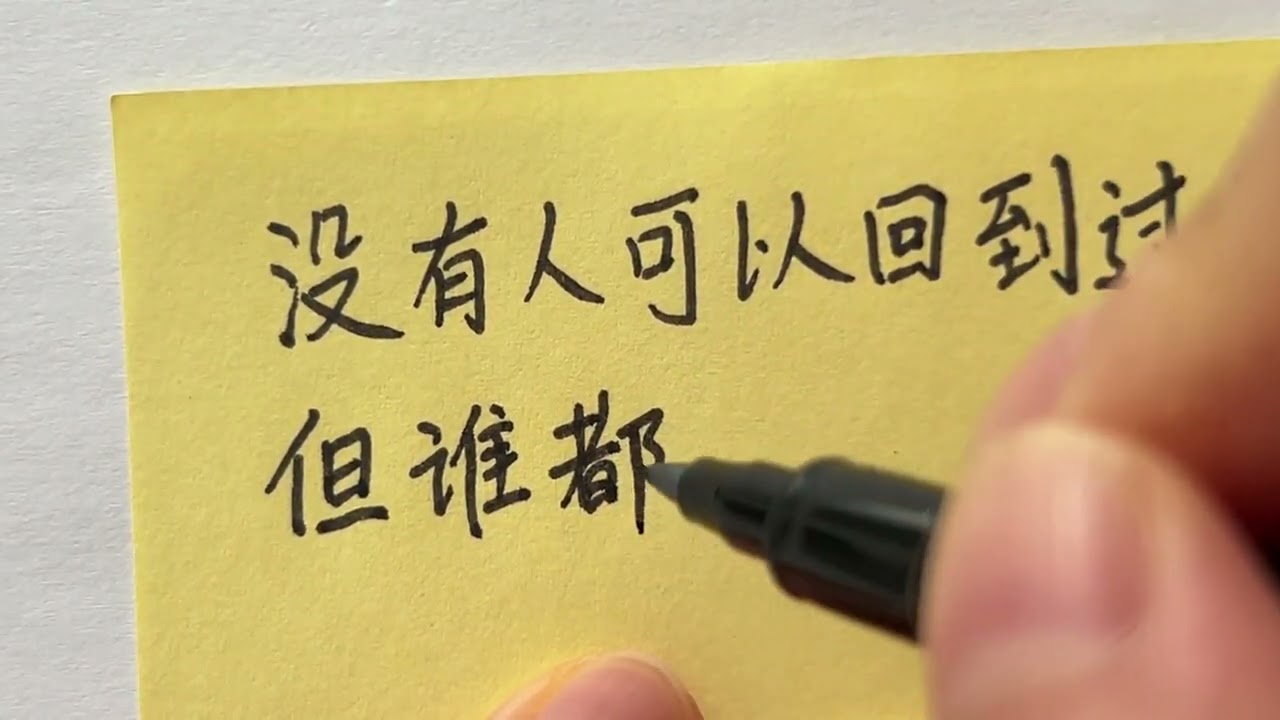 没有人可以回到过
但谁都